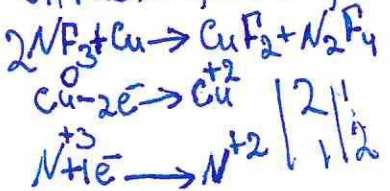 2NF₃+Cu → CuF₂+N₂F₄
Cu⁰-2e⁻ → Cu⁺² | 2 | 1
N⁺³+1e⁻ → N⁺² | 1 | 2